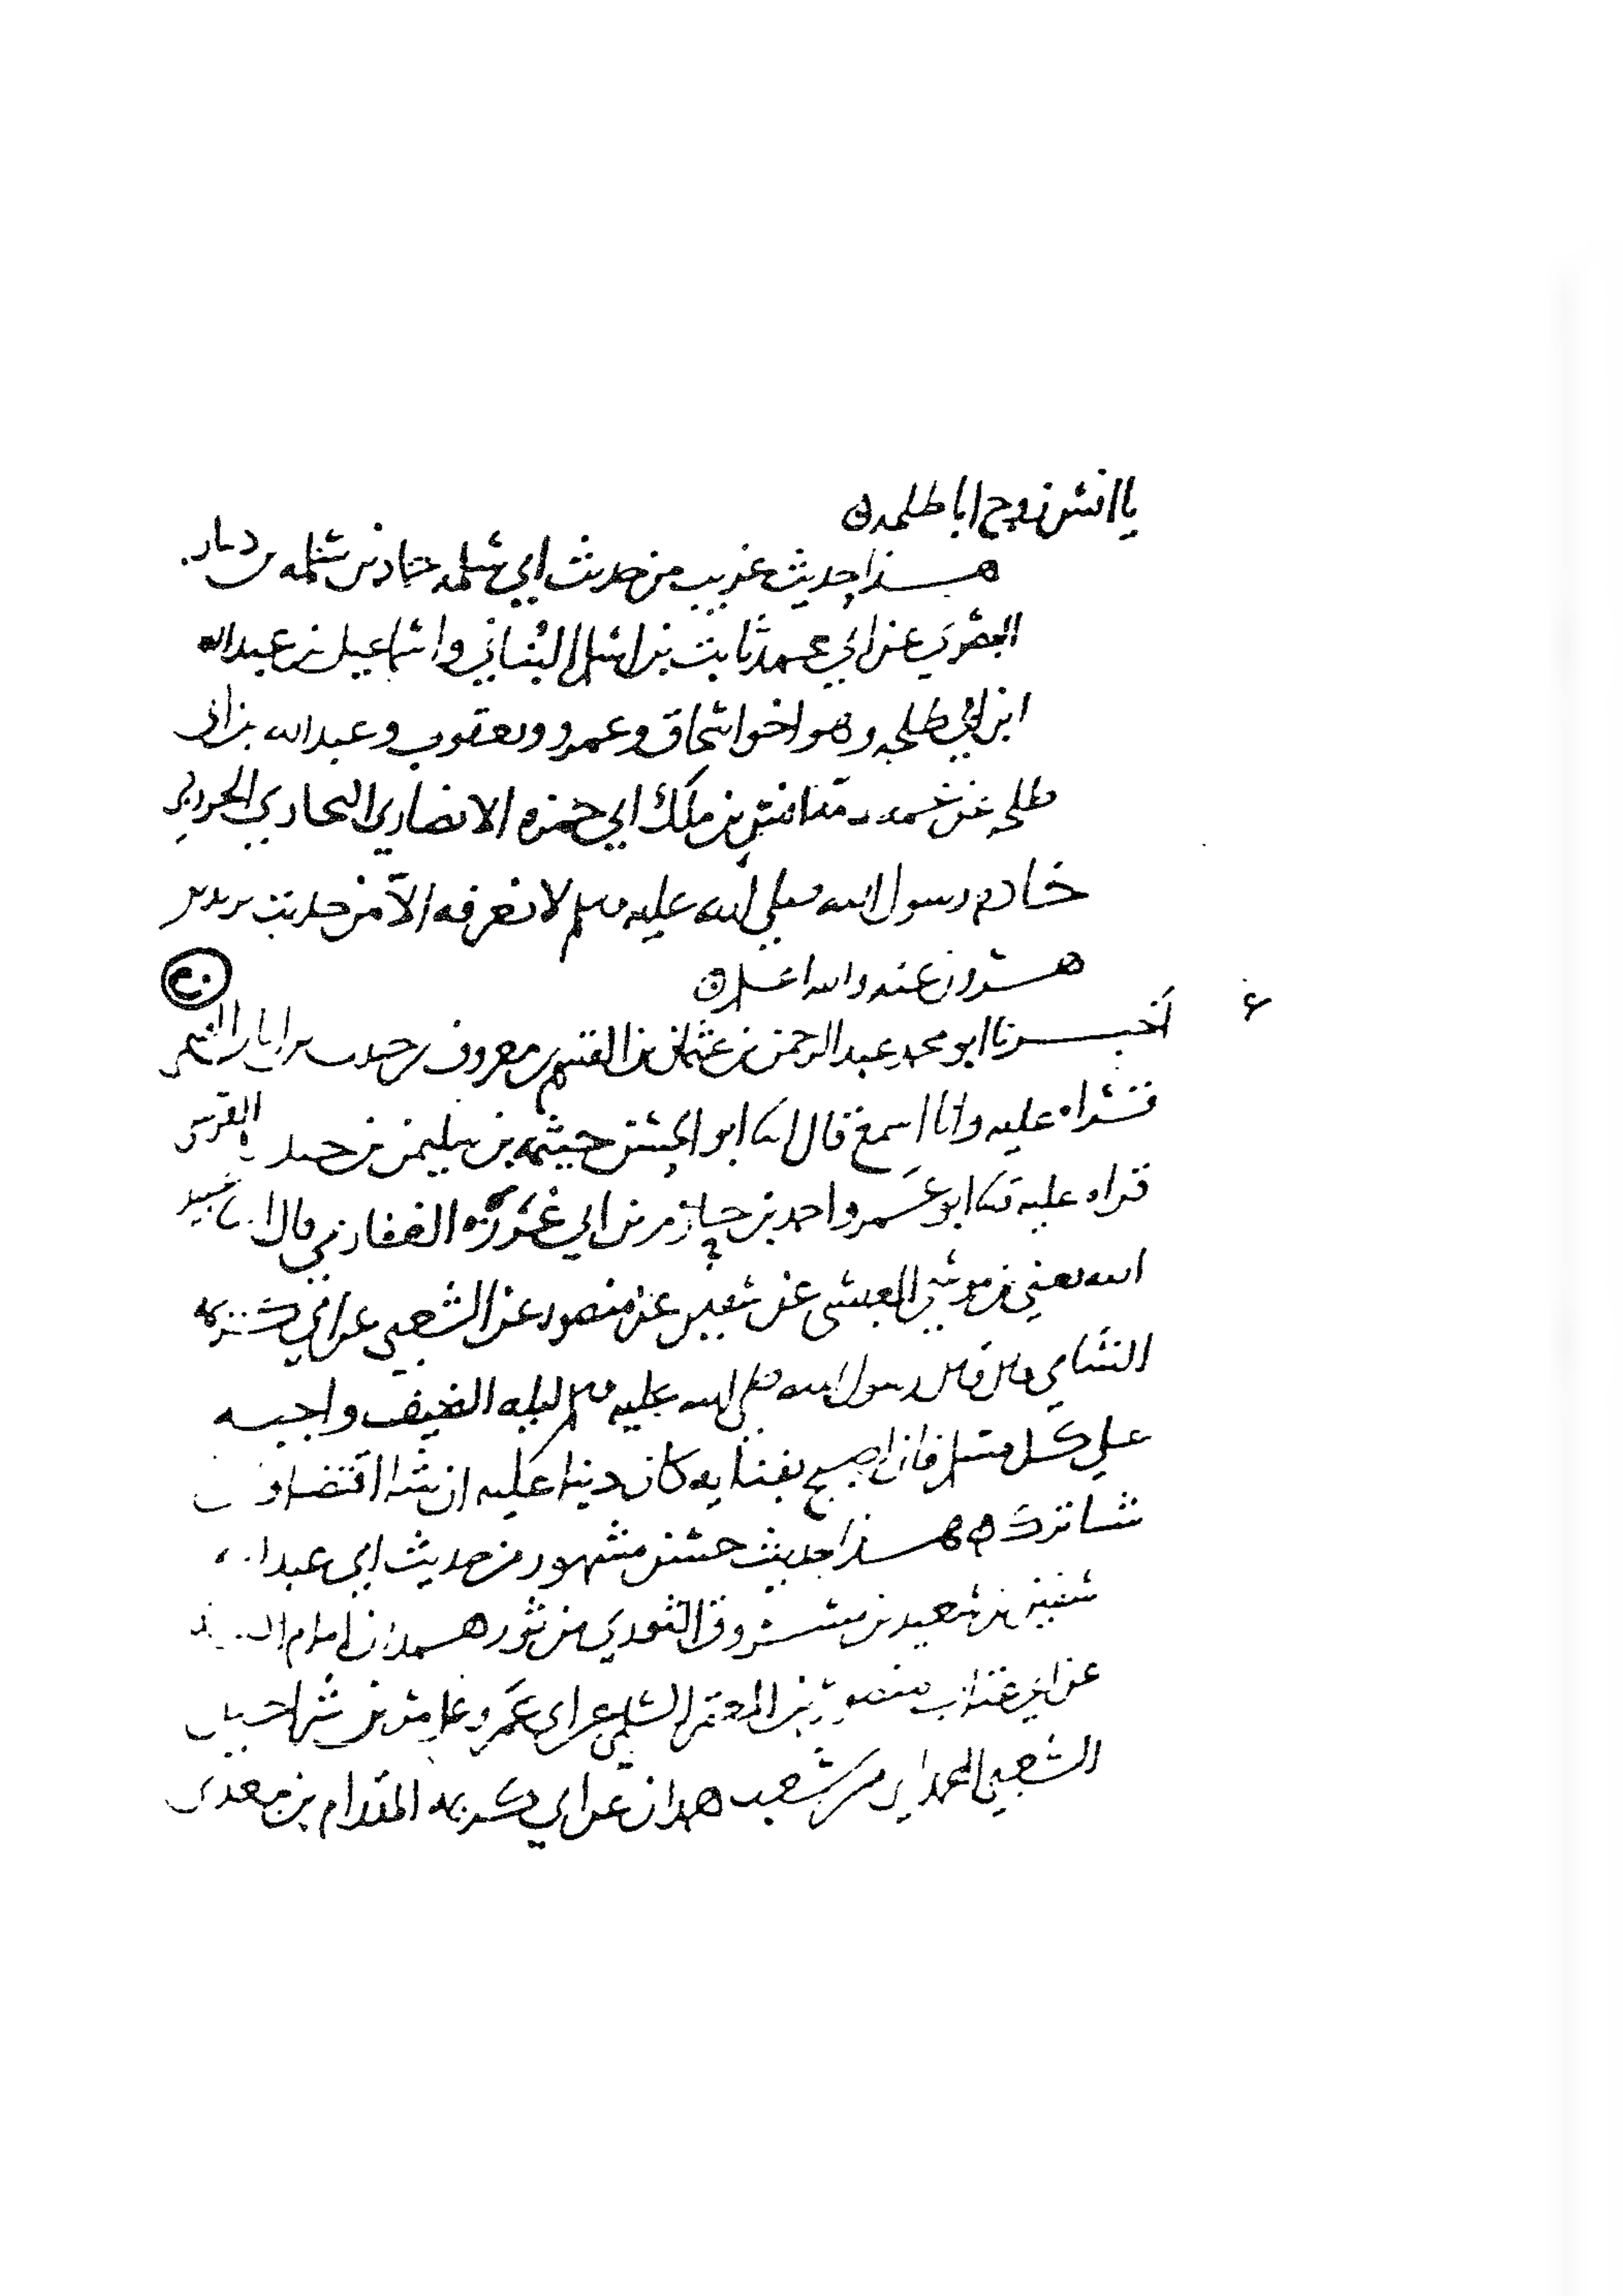 يا انس زوج ابا طلحه
هذا حديث غريب من حديث ابي سلمه حماد بن سلمه بن دينار
البصري عن ابي محمد ثابت بن اسلم البناني واسماعيل بن عبدالله
ابن ابي طلحه وهو اخو اسحاق وعمرو ويعقوب وعبدالله بن ابي
طلحه عن انس بن ملك ابي حمزه الانصاري النجاري
خادم رسول الله صلى الله عليه وسلم لا نعرفه الا من حديث يزيد بن
هرون عنه والله اعلم
٤ أخبرنا ابو محمد عبد الرحمن بن عثمان بن القسم بن معروف بن حبيب بن ابان التميمي
قراه عليه وانا اسمع قال انا ابو الحسن خيثمه بن سليمن بن حيدره القرشي
قراه عليه ثنا ابو عمرو احمد بن حازم بن ابي غرزه الغفاري قال انا عبيد
الله يعني بن موسى العبسي عن سفين عن منصور عن الشعبي عن ابي كريمه
الشامي قال قال رسول الله صلى الله عليه وسلم ليله الضيف واجبه
على كل مسلم فان اصبح بفنايه كان دينا عليه ان شا اقتضا وان
شا ترك هذا حديث حسن مشهور من حديث ابي عبدالله
سفين بن سعيد بن مسروق الثوري من ثور همدان امام
عن ابي عتاب منصور بن المعتمر السلمي عن ابي عمرو عامر بن شراحيل
الشعبي الهمداني من شعب همدان عن ابي كريمه المقدام بن معدي